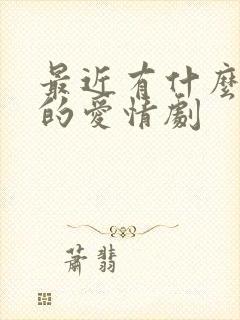 最近有什麼
的愛情劇
蕭翡